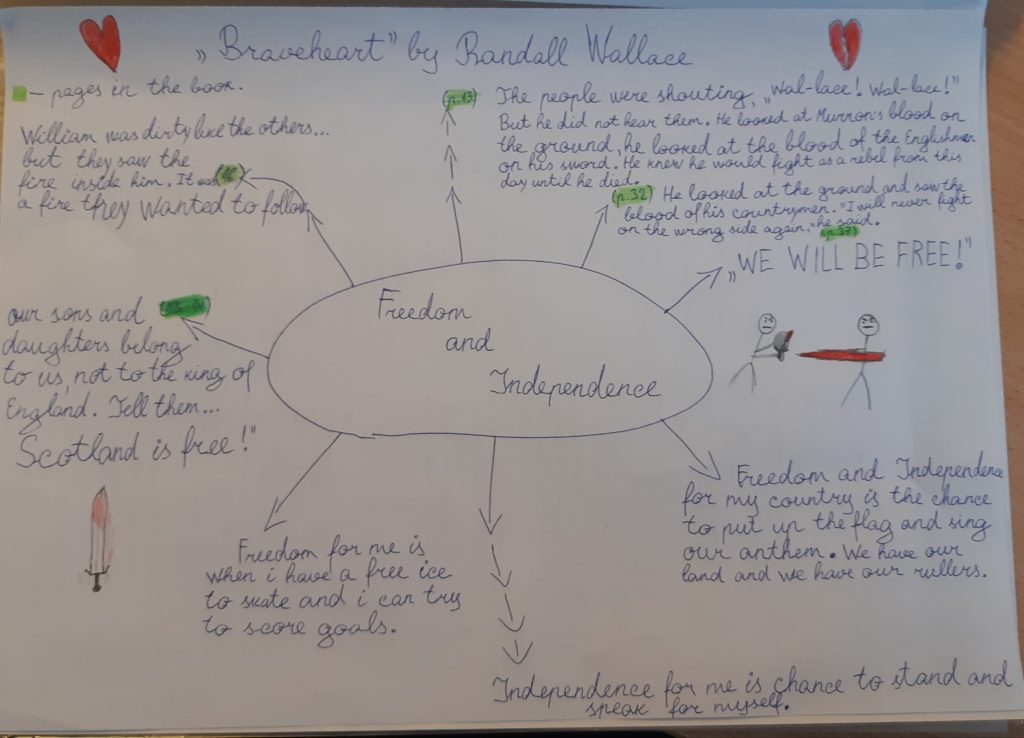 „Braveheart" by Randall Wallace
– pages in the book.
William was dirty like the others...
but they saw the
fire inside him. It was
a fire they wanted to follow
(p.13)
The people were shouting, „Wal-lace! Wal-lace!"
But he did not hear them. He looked at Murron's blood on
the ground, he looked at the blood of the Englishmen
on his sword. He knew he would fight as a rebel from this
day until he died.
(p.32) He looked at the ground and saw the
blood of his countrymen. "I will never fight
on the wrong side again," he said.
„WE WILL BE FREE!"
our sons and
daughters belong
to us, not to the king of
England. Tell them...
Scotland is free!"
Freedom
and
Independence
Freedom for me is
when i have a free ice
to skate and i can try
to score goals.
Freedom and Independence
for my country is the chance
to put up the flag and sing
our anthem. We have our
land and we have our rullers.
Independence for me is chance to stand and
speak for myself.